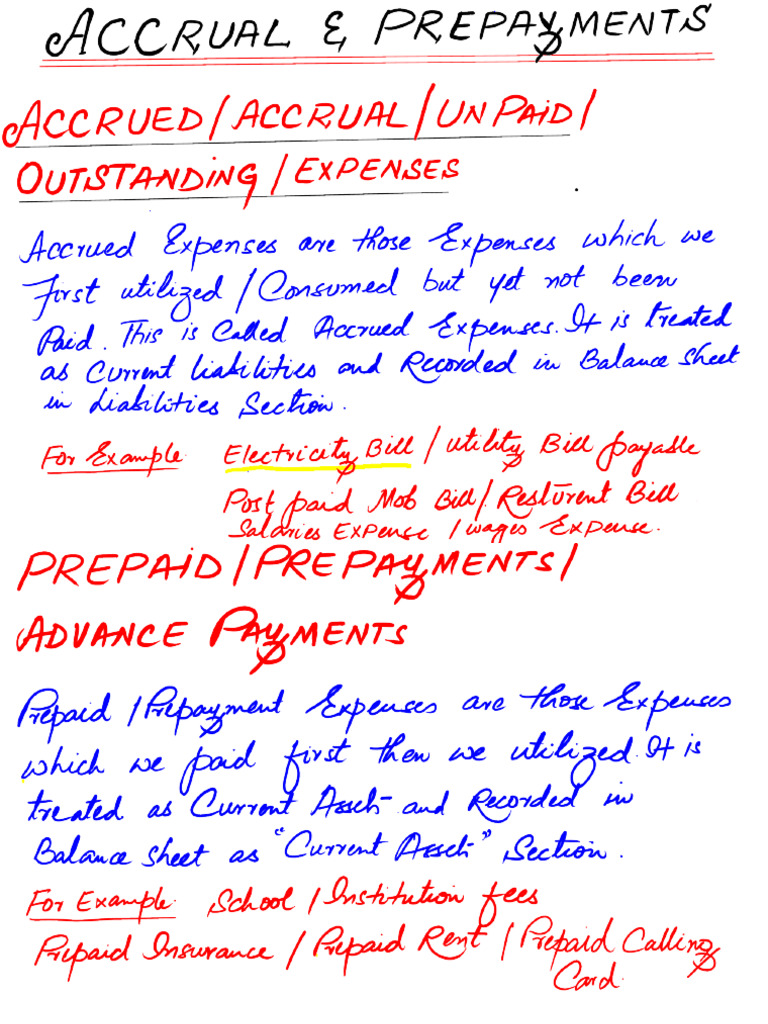 ACCRUAL & PREPAYMENTS
ACCRUED/ACCRUAL/UNPAID/
OUTSTANDING/EXPENSES
Accrued Expenses are those Expenses which we
First utilized/Consumed but yet not been
Paid. This is Called Accrued Expenses. It is treated
as Current liabilities and Recorded in Balance Sheet
in Liabilities Section.
For Example Electricity Bill/utility Bill payable
Post paid Mob Bill/Resturent Bill
Salaries Expense /wages Expense.
PREPAID/PREPAYMENTS/
ADVANCE PAYMENTS
Prepaid/Prepayment Expenses are those Expenses
which we paid first then we utilized. It is
treated as Current Assets and Recorded in
Balance sheet as "Current Assets" Section.
For Example School/Institution fees
Prepaid Insurance/Prepaid Rent/Prepaid Calling
Card.